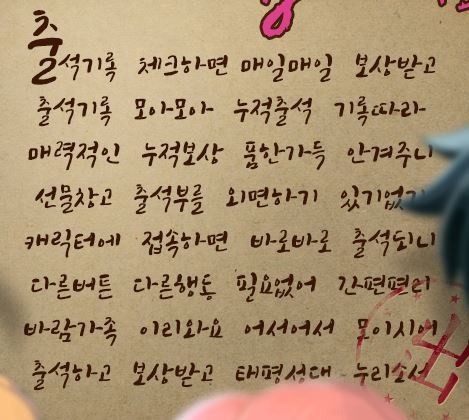 출석기록 체크하면 매일매일 보상받고
출석기록 모아모아 누적출석 기록따라
매력적인 누적보상 품한가득 안겨주니
선물창고 출석부를 외면하기 있기없기
캐릭터에 접속하면 바로바로 출석되니
다른버튼 다른행동 필요없어 간편편리
바람가족 이리와요 어서어서 모이시어
출석하고 보상받고 태평성대 누리소서